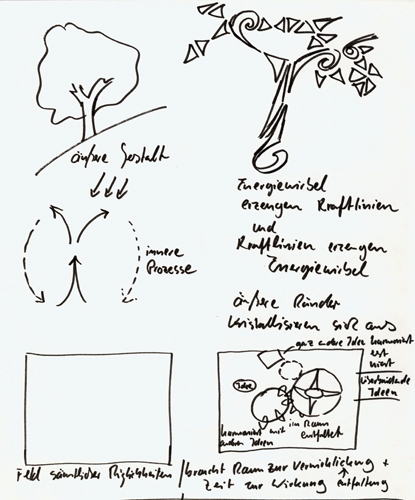 äußere Gestalt
innere
Prozesse
Energiewirbel
erzeugen Kraftlinien
und
Kraftlinien erzeugen
Energiewirbel
äußere Ränder
kristallisieren sich aus
ganz andere Idee harmoniert
erst
nicht
überschneidende
Ideen
Idee
harmoniert mit
anderen Ideen
im Raum
entfaltet
Feld sämtlicher Möglichkeiten
braucht Raum zur Verwirklichung +
Zeit zur Wirkung
entfaltung